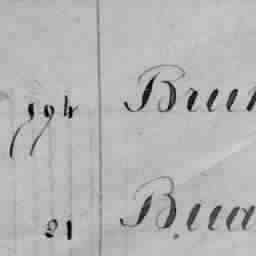 194 Brun
21 Bua